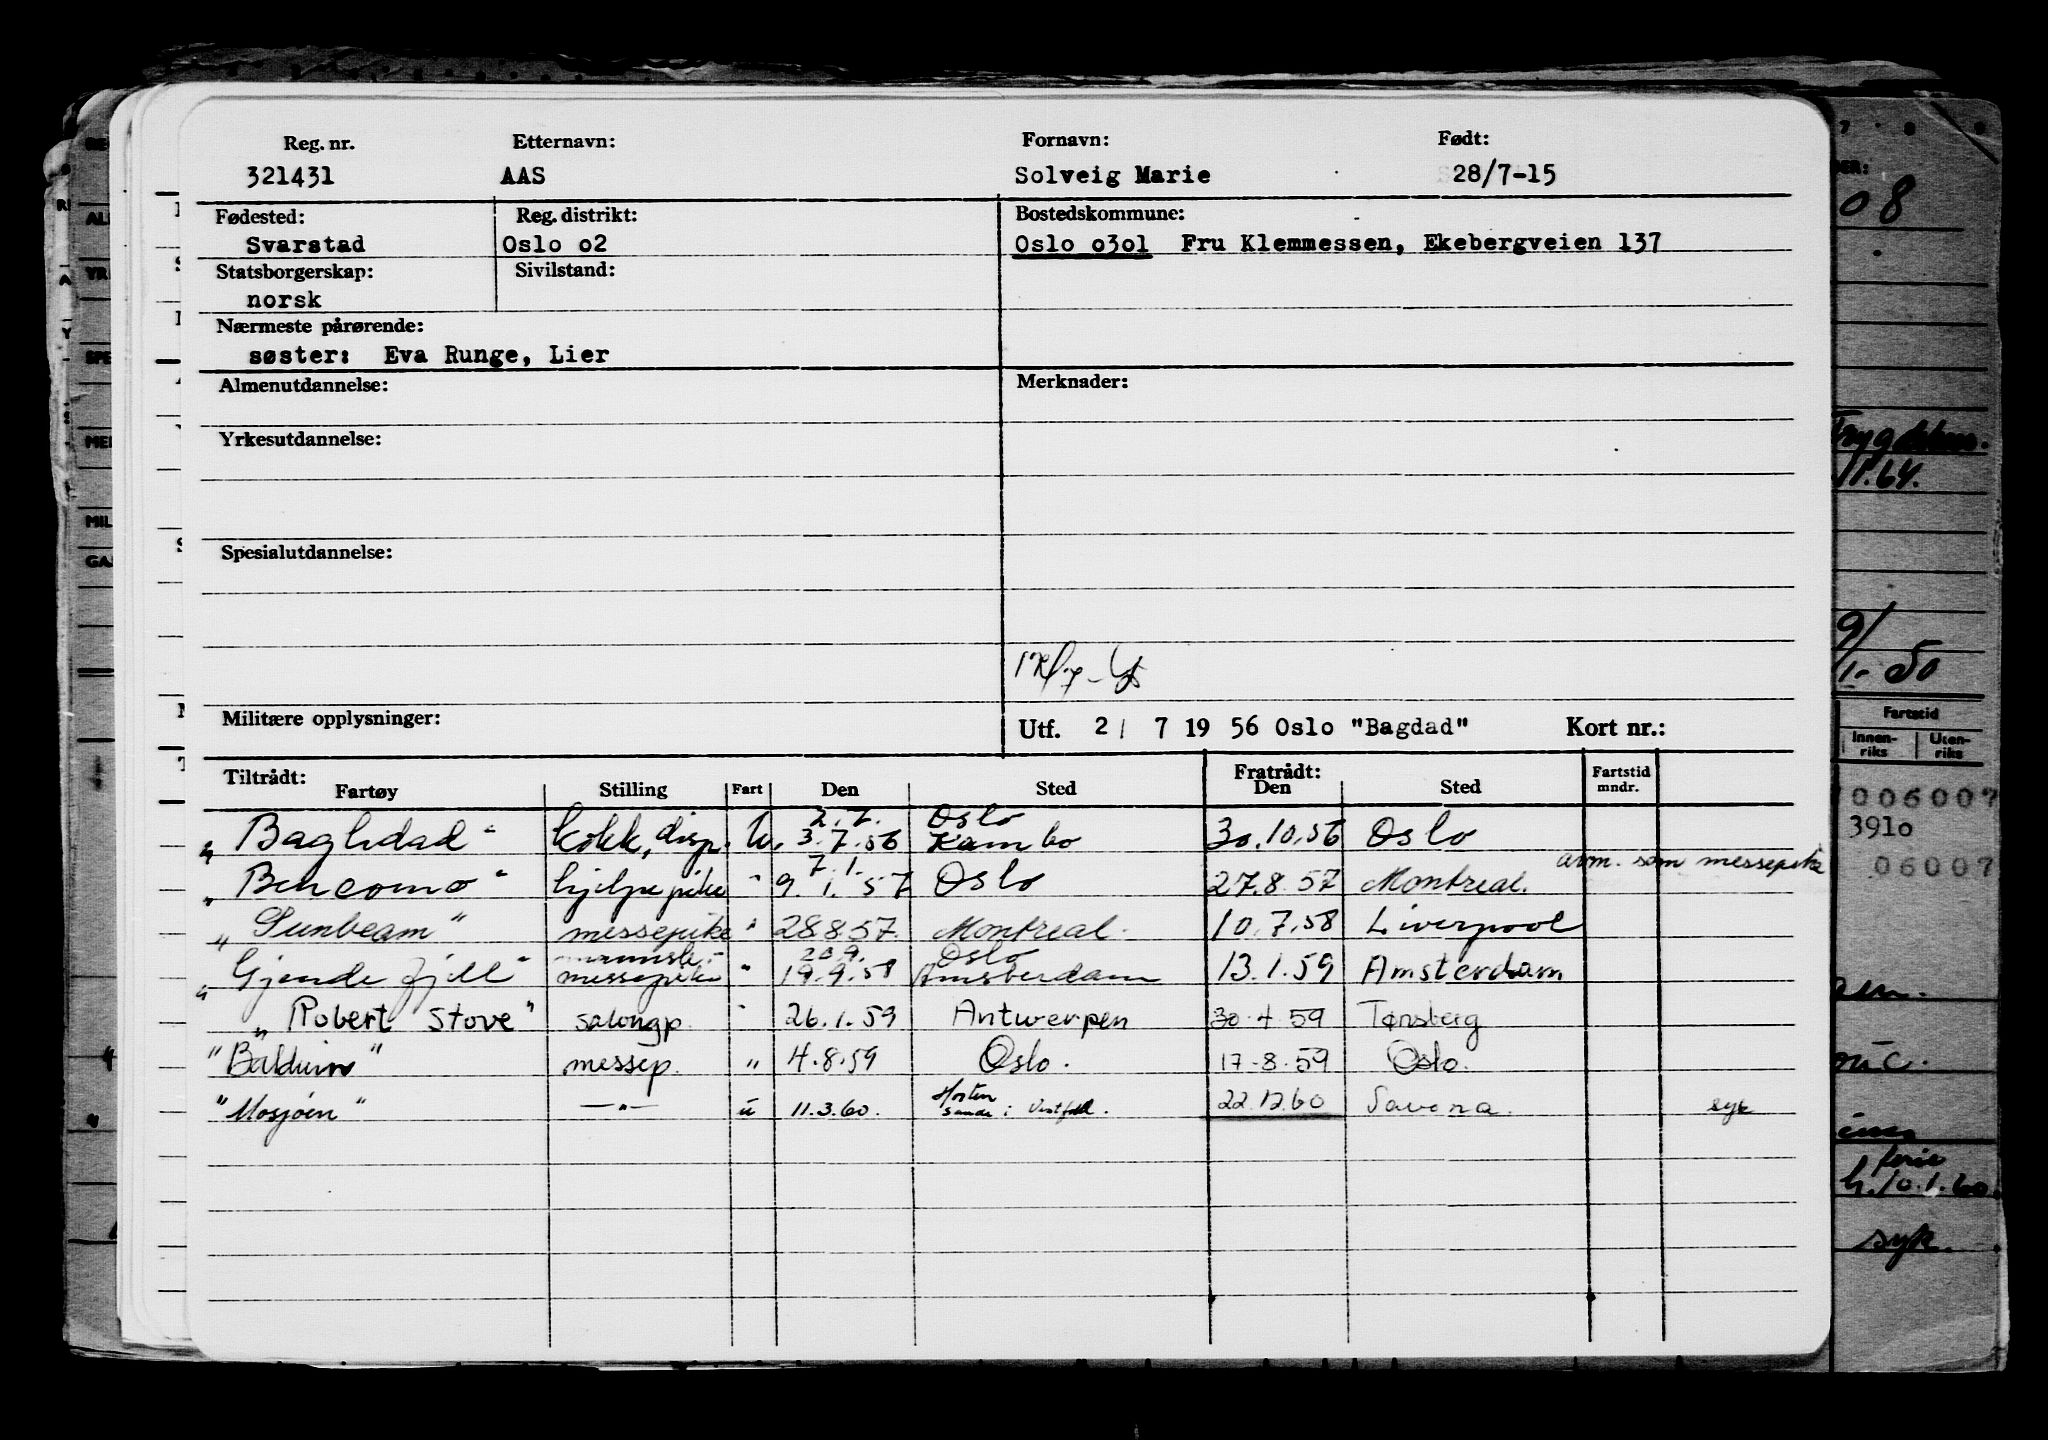 Reg. nr. Etternavn: Fornavn: Født:
321431 AAS Solveig Marie 28/7-15
Fødested: Reg. distrikt: Bostedskommune:
Svarstad Oslo o2 Oslo o3o1 Fru Klemmessen, Ekebergveien 137
Statsborgerskap: Sivilstand:
norsk
Nærmeste pårørende:
søster: Eva Runge, Lier
Almenutdannelse: Merknader:
Yrkesutdannelse:
Spesialutdannelse:
Militære opplysninger: Utf. 2/ 7 19 56 Oslo "Bagdad" Kort nr.:
Tiltrådt: Fratrådt:
Fartøy Stilling Fart Den Sted Den Sted Fartstid mndr.
2.7. Oslo
"Baghdad" kokk, disp. u. 3.7.56 Kambo 30.10.56 Oslo
7.1. avm. som messepike
"Bencomo" hjelpepike " 9.1.57 Oslo 27.8.57 Montreal.
"Sunbeam" messepike " 28.8.57. Montreal. 10.7.58 Liverpool
20.9. Oslo
"Gjendefjell" messepike " 19.9.58 Amsterdam 13.1.59 Amsterdam
"Robert Stove" salongp. " 26.1.59 Antwerpen 30.4.59 Tønsberg
"Balduin" messep. " 4.8.59 Oslo. 17-8.59 Oslo.
"Mosjøen" —"— u 11.3.60. Horten sande i Vestfold. 22.12.60 Savona. syk
08
1.64.
9/
1-50
Fartstid
Innen-riks Uten-riks
006007
3910
06007
ferie
h.10.1.60.
syk.